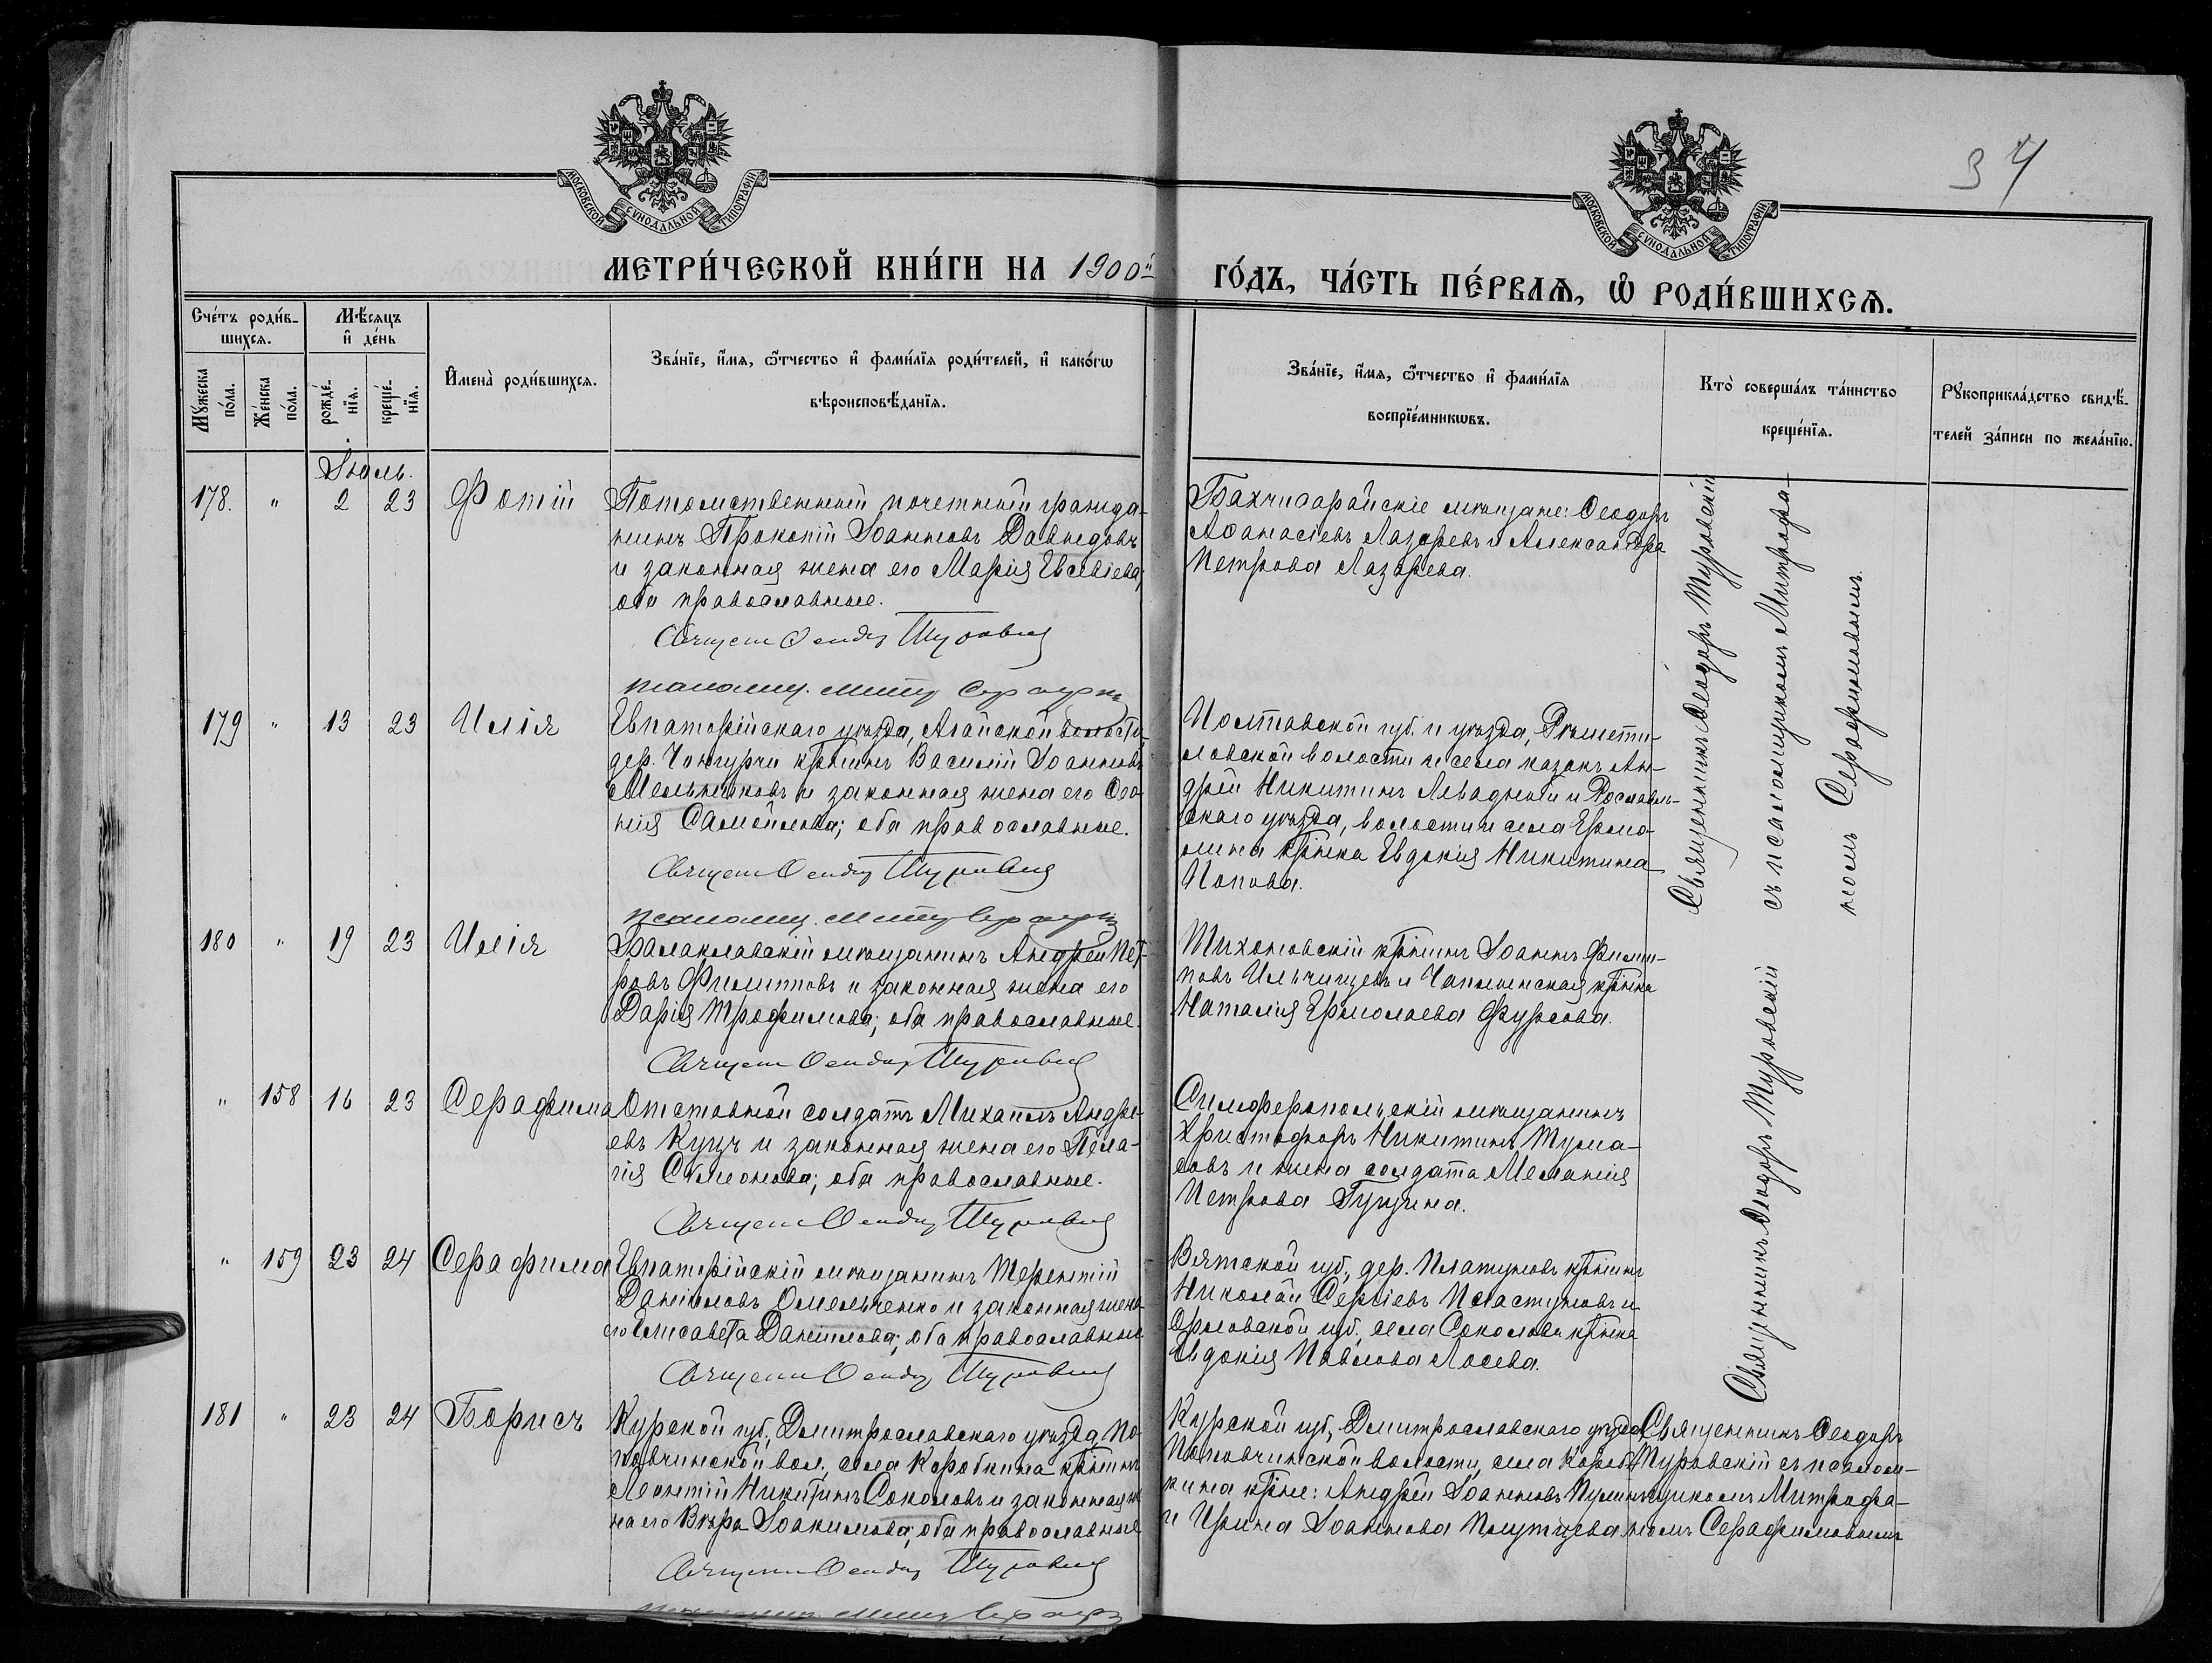 37
МОСКОВСКОЙ СѴНОДАЛЬНОЙ ТИПОГРАФІИ
МОСКОВСКОЙ СѴНОДАЛЬНОЙ ТИПОГРАФІИ
МЕТРИ́ЧЕСКОЙ КНИ́ГИ НА 1900й ГО́ДЪ, ЧА́СТЬ ПЕ́РВАѦ, Ѡ҆ РОДИ́ВШИХСѦ.
Сче́тъ роди́в-
шихсѧ.
Мꙋ́жеска
по́ла.
Же́нска
по́ла.
Мѣ́сѧцъ
и҆ де́нь
рожде́-
нїѧ.
креще́-
нїѧ.
И҆мена̀ роди́вшихсѧ.
Зва́нїе, и҆́мѧ, ѻ҆́тчество и҆ фами́лїѧ роди́телей, и҆ како́гѡ
вѣроисповѣ́данїѧ.
Зва́нїе, и҆́мѧ, ѻ҆́тчество и҆ фами́лїѧ
воспрїе́мникѡвъ.
Кто̀ соверша́лъ та́инство
креще́нїѧ.
Рꙋкоприкла́дство свидѣ́-
телей за́писи по жела́нїю.
Іюль.
178. " 2 23 Фотій
Потомственный почетный гражда-
нинъ Прокопій Іоанновъ Давыдовъ
и законная жена его Марія Евсевіева;
оба православные.
Священ Феодор Туровскій
псаломщ. Митр Серафим
Бахчисарайскіе мѣщане: Ѳеодоръ
Аѳанасіевъ Лазаревъ и Александра
Петрова Лазарева.
Священникъ Ѳеодоръ Туровскій
съ псаломщикомъ Митрофа-
номъ Серафимовымъ.
179 " 13 23 Илія
Евпаторійскаго уѣзда, Агайской волости,
дер. Чонгурчи крѣнинъ Василій Іоанновъ
Мельниковъ и законная жена его Ѳео-
нія Самойлова; оба православные.
Священ Феодор Туровскій
псаломщ. Митр Серафим
Полтавской губ. и уѣзда, Рѣшети-
ловской волости и села казакъ Ан-
дрей Никитинъ Левадный и Рославль-
скаго уѣзда, волости и села Ермо-
лина крѣнка Евдокія Никитина
Попова.
180 " 19 23 Илія
Балаклавскій мѣщанинъ Андрей Пет-
ровъ Филипповъ и законная жена его
Дарія Трофимова; оба православные.
Священ Феодор Туровскій
Тихоновскій крѣнинъ Іоаннъ Филип-
повъ Ильчищевъ и Чаплинская крѣнка
Наталія Ермолаева Фурсова.
" 158 16 23 Серафима
Отставной солдатъ Михаилъ Андре-
евъ Куцъ и законная жена его Пела-
гія Симеонова; оба православные.
Священ Феодор Туровскій
Симферопольскій мѣщанинъ
Христофоръ Никитинъ Тума-
совъ и жена солдата Меланія
Петрова Гущина.
Священникъ Ѳеодоръ Туровскій
" 159 23 24 Серафима
Евпаторійскій мѣщанинъ Терентій
Даніиловъ Омельченко и законная жена
его Елисавета Даніилова; оба православные
Священ Феодор Туровскій
Вятской губ., дер. Платуновъ крѣнинъ
Николай Сергіевъ Пластуновъ и
Орловской губ. села Соколова крѣнка
Евдокія Павлова Лосева.
181 " 23 24 Борисъ
Курской губ., Дмитрославскаго уѣзда, По-
повчинской вол., села Коробкина крѣнинъ
Леонтій Никитинъ Соколовъ и законная же-
на его Вѣра Іоакимова; оба православные
Священ Феодор Туровскій
псаломщ. Митр Серафим
Курской губ., Дмитрославскаго уѣзда,
Поповчинской волости, села Короб-
кина крѣне: Андрей Іоанновъ
и Ирина Іоаннова
Священникъ Ѳеодоръ
Туровскій съ псалом-
щикомъ Митрофа-
номъ Серафимовымъ